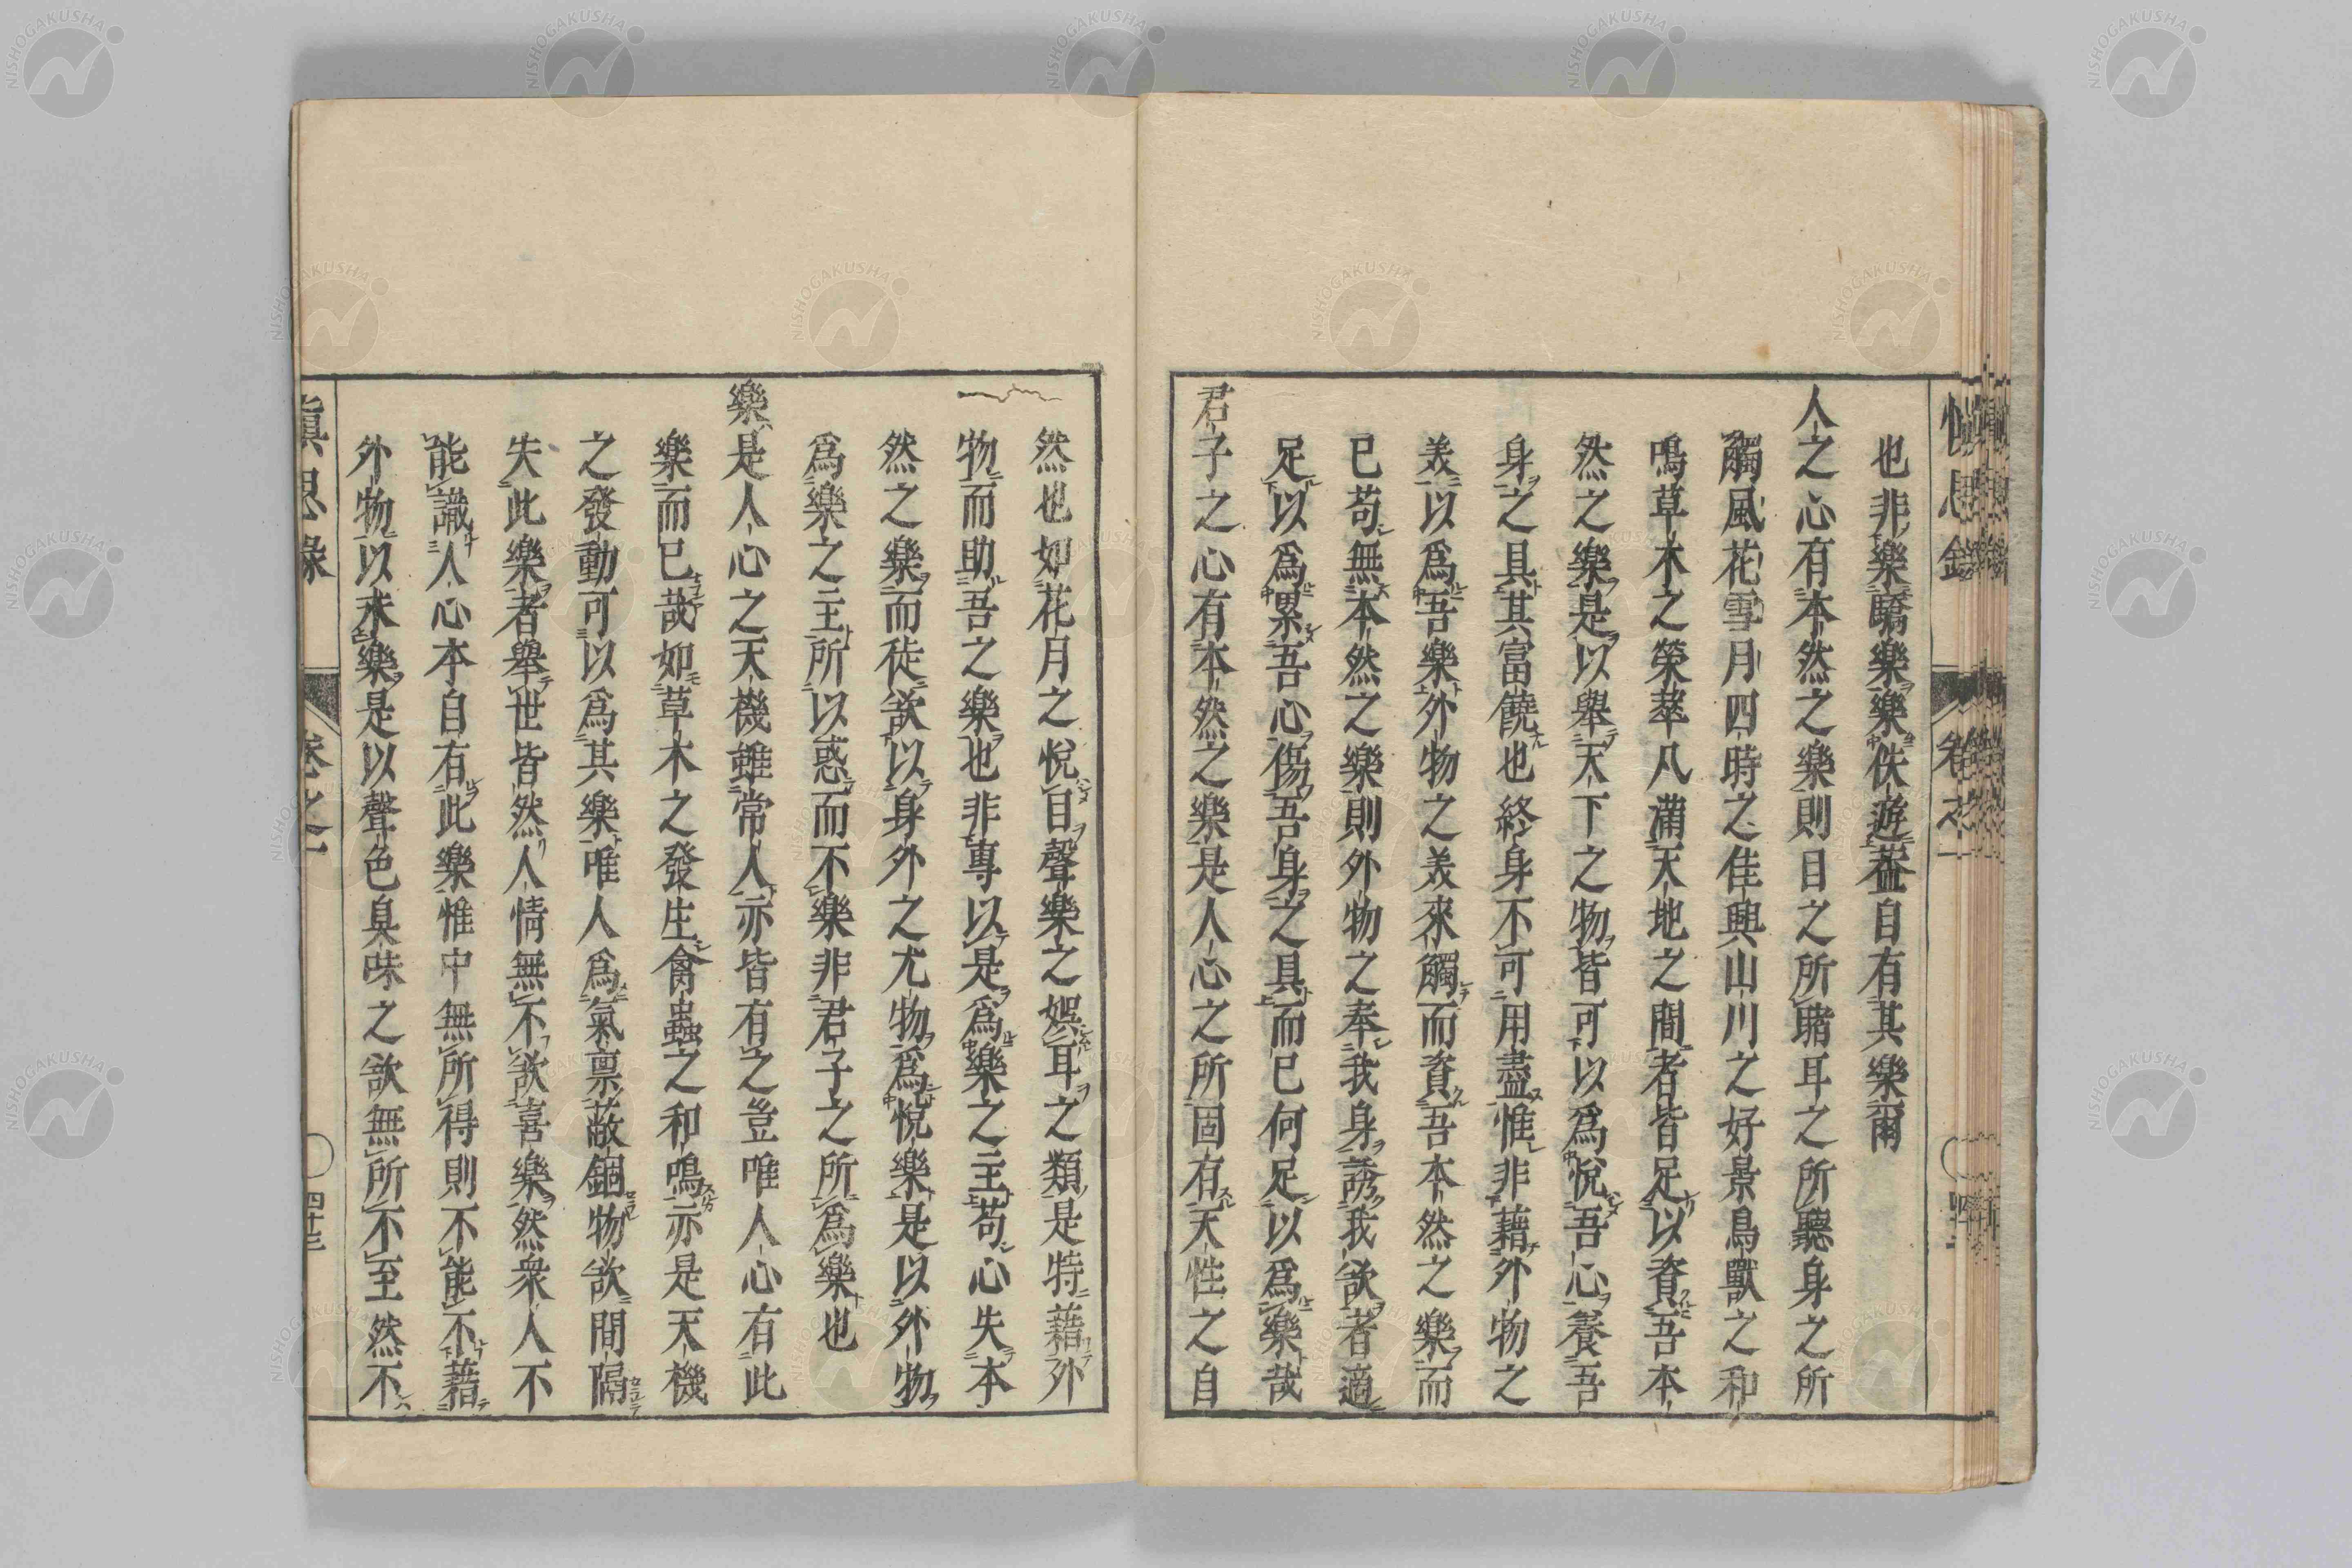 也非樂驕樂樂佚遊蓋自有其樂爾
人之心有本然之樂則目之所睹耳之所聽身之所
觸風花雪月四時之佳興山川之好景鳥獸之和
鳴草木之榮萃凡滿天地之間者皆足以資吾本
然之樂是以舉天下之物皆可以爲悅吾心養吾
身之具其富饒也終身不可用盡惟非藉外物之
美以爲吾樂外物之美來觸而資吾本然之樂而
已苟無本然之樂則外物之奉我身誘我欲者適
足以爲累吾心傷吾身之具而已何足以爲樂哉
君子之心有本然之樂是人心之所固有天性之自
然也如花月之悅目聲樂之娯耳之類是特藉外
物而助吾之樂也非專以是爲樂之主苟心失本
然之樂而徒欲以身外之尤物爲悅樂是以外物
爲樂之主所以惑而不樂非君子之所爲樂也
樂是人心之天機雖常人亦皆有之豈唯人心有此
樂而已哉如草木之發生禽蟲之和鳴亦是天機
之發動可以爲其樂唯人爲氣禀蔽錮物欲間隔
失此樂者舉世皆然人情無不欲喜樂然衆人不
能識人心本自有此樂惟中無所得則不能不藉
外物以求樂是以聲色臭味之欲無所不至然不
愼思錄
卷之一
四十三
NISHOGAKUSHA